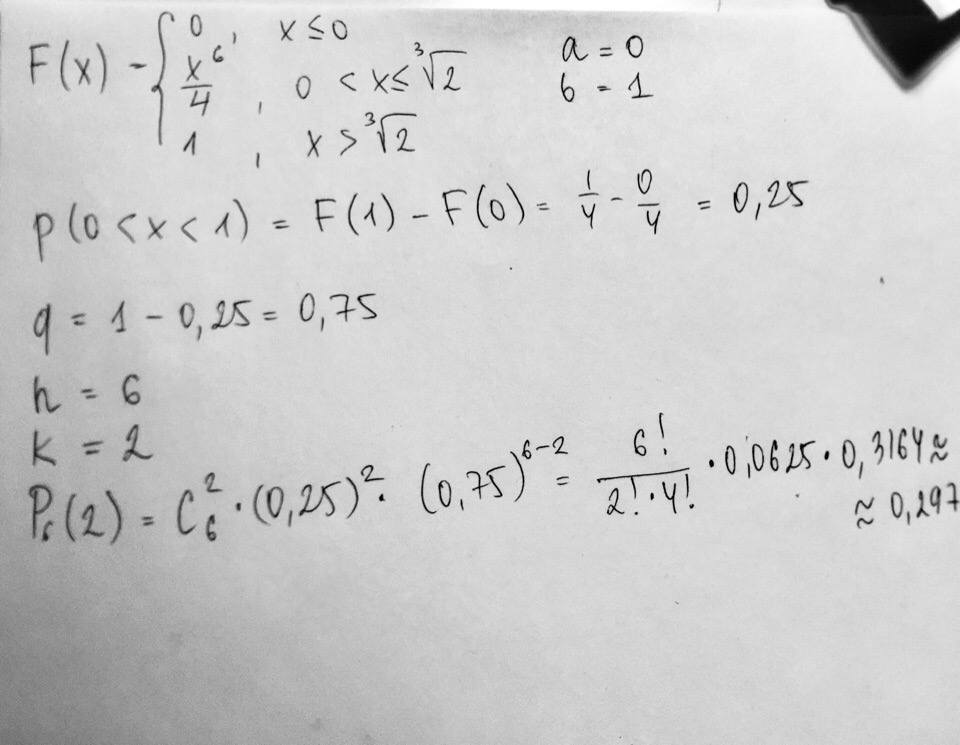 F(x) - { 0, x ≤ 0
x⁶/4, 0 < x ≤ ∛2
1, x > ∛2
a = 0
b = 1
p(0 < x < 1) = F(1) - F(0) = 1/4 - 0/4 = 0,25
q = 1 - 0,25 = 0,75
n = 6
k = 2
P₆(2) = C₆² · (0,25)² · (0,75)⁶⁻² = 6!/(2! · 4!) · 0,0625 · 0,3164 ≈
≈ 0,297